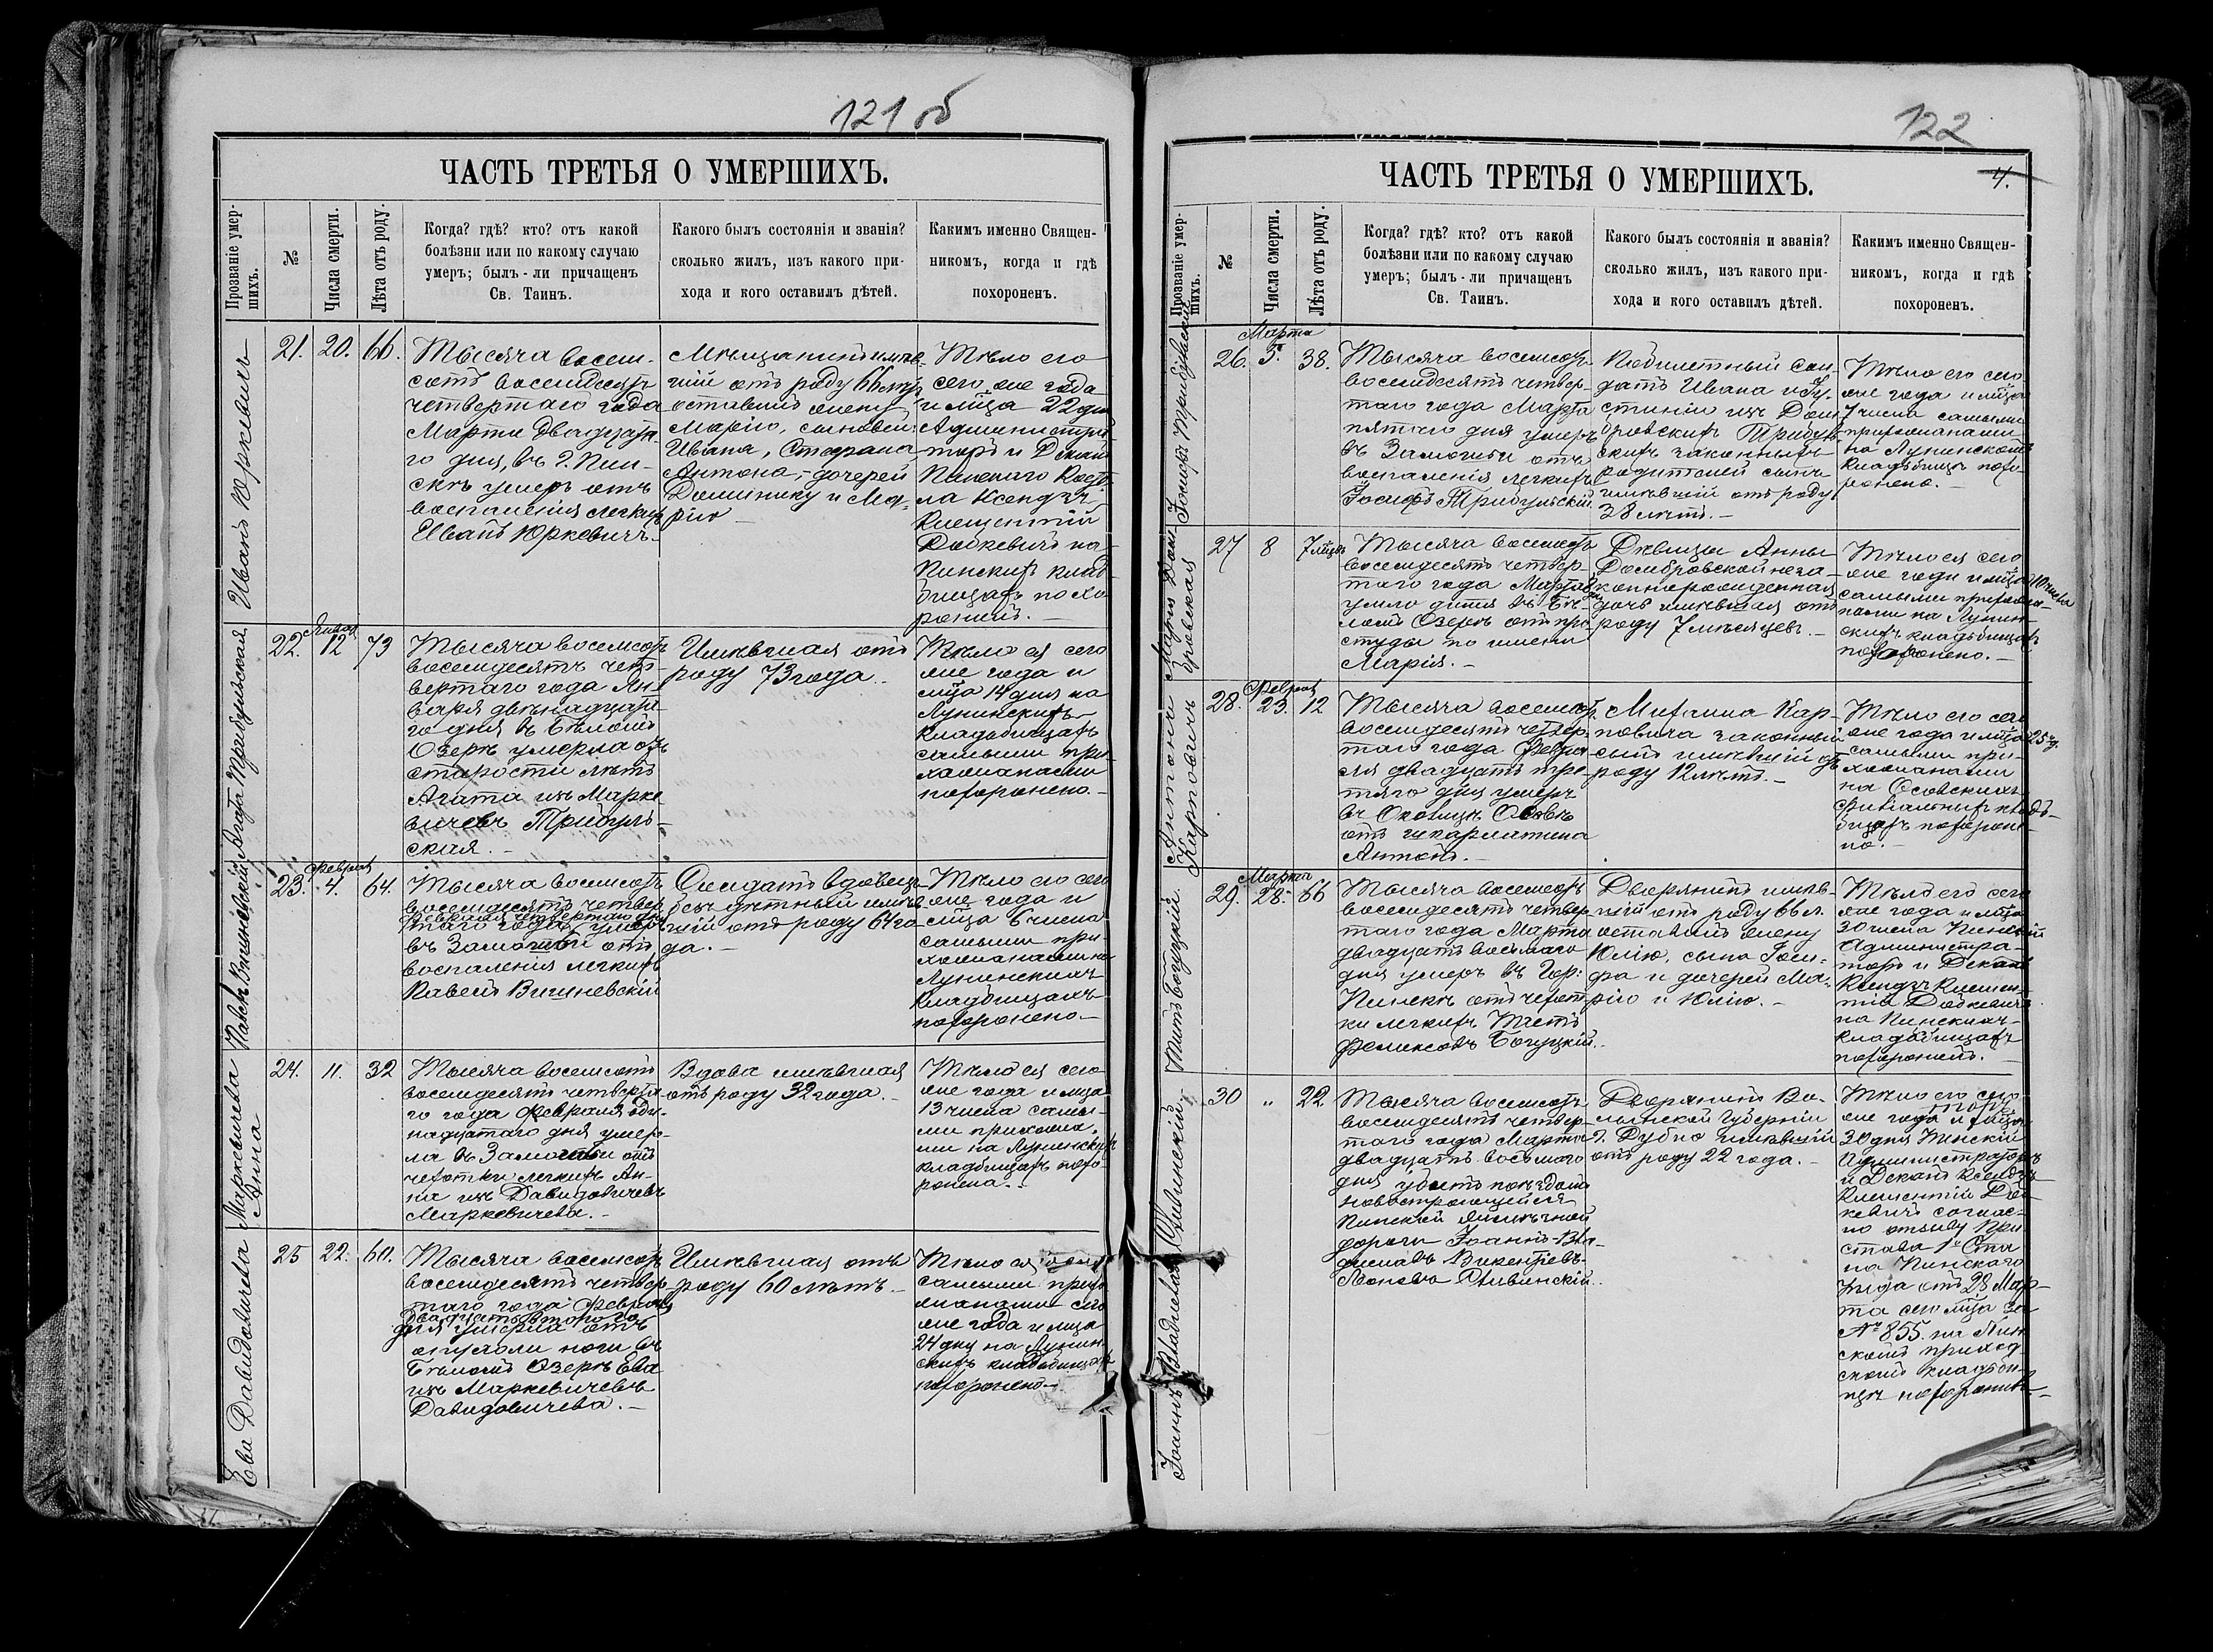 121 об
ЧАСТЬ ТРЕТЬЯ О УМЕРШИХЪ.
Прозваніе умер-
шихъ.
№
Числа смерти.
Лѣта отъ роду.
Когда? гдѣ? кто? отъ какой
болѣзни или по какому случаю
умеръ; былъ-ли причащенъ
Св. Таинъ.
Какого былъ состоянія и званія?
сколько жилъ, изъ какого при-
хода и кого оставилъ дѣтей.
Какимъ именно Священ-
никомъ, когда и гдѣ
похороненъ.
Иванъ Юркевичъ
21. 20. 66.
Тысяча восем-
сотъ восемдесятъ
четвертаго года
Марта двадцата-
го дня, въ г. Пин-
скѣ умеръ отъ
воспаленія легкихъ
Иванъ Юркевичъ.
Мѣщанинъ имѣв-
шій отъ роду 66 лѣтъ
оставилъ жену
Марію, сыновей:
Ивана, Стефана
Антона, дочерей
Доминику и Ма-
рію
Тѣло его
сего же года
и мѣца 22 дня
Администра-
торъ и Деканъ
Пинскаго Косте-
ла Ксендзъ
Климентій
Доткевичъ на
Пинскихъ клад-
бищахъ похо-
ронилъ.
Агата Трибульская
22. Январ 12 73
Тысяча восемсотъ
восемдесятъ чет-
вертаго года Ян-
варя двѣнадцата-
го дня въ Бѣломъ
Озерѣ умерла отъ
старости лѣтъ
Агата изъ Марке-
вичевъ Трибуль-
ская.
Имѣвшая отъ
роду 73 года.
Тѣло ея сего
же года и
мѣца 14 дня на
Лунинскихъ
кладбищахъ
самыми при-
хожанами
похоронено.
Павелъ Вишневскій
23. Феврал 4. 64.
Тысяча восемсотъ
восемдесятъ четвер-
таго года Февраля четвертаго дня умеръ
въ Замошьи отъ
воспаленія легкихъ
Павелъ Вишневскій
Солдатъ вдовецъ
бездѣтный имѣв-
шій отъ роду 64 го-
да.
Тѣло его сего
же года и
мѣца 6 числа
самыми при-
хожанами на
Лунинскихъ
кладбищахъ
похоронено.
Маркевичева
Анна
24. 11. 32
Тысяча восемсотъ
восемдесятъ четверта-
го года Февраля оди-
надцатаго дня умер-
ла въ Замошьи отъ
чехотки легкихъ Ан-
на изъ Давидовичевъ
Маркевичева.
Вдова имѣвшая
отъ роду 32 года.
Тѣло ея сего
же года и мѣца
13 числа самы-
ми прихожа-
ми на Лунинскихъ
кладбищахъ похо-
ронена.
Ева Давидовичева
25 22. 60.
Тысяча восемсотъ
восемдесятъ четвер-
таго года Февраля
двадцать втораго
дня умерла отъ
опухоли ноги въ
Бѣломъ Озерѣ Ева
изъ Маркевичевъ
Давидовичева.
Имѣвшая отъ
роду 60 лѣтъ.
Тѣло ея
самыми прихо-
жанами сего
же года и мѣца
24 дня на Лунин-
скихъ кладбищахъ
похоронено.
122
4.
ЧАСТЬ ТРЕТЬЯ О УМЕРШИХЪ.
Прозваніе умер-
шихъ.
№
Числа смерти.
Лѣта отъ роду.
Когда? гдѣ? кто? отъ какой
болѣзни или по какому случаю
умеръ; былъ-ли причащенъ
Св. Таинъ.
Какого былъ состоянія и званія?
сколько жилъ, изъ какого при-
хода и кого оставилъ дѣтей.
Какимъ именно Священ-
никомъ, когда и гдѣ
похороненъ.
Іосифъ Трибульскій
26. Марта 5. 38.
Тысяча восемсотъ
восемдесятъ четвер-
таго года Марта
пятаго дня умеръ
въ Замошьи отъ
воспаленія легкихъ
Іосифъ Трибульскій
Побилетный сол-
датъ Ивана и Ю-
стиніи изъ Дом-
бровскихъ Трибуль-
скихъ законныхъ
родителей сынъ
имѣвшій отъ роду
38 лѣтъ.
Тѣло его сего
же года и мѣца
7 числа самыми
прихожанами
на Лунинскомъ
кладбищѣ похо-
ронено.
Марія Дом-
бровская
27 8 7 мѣцевъ
Тысяча восемсотъ
восемдесятъ четвер-
таго года Марта 8 дня
умло дитя въ Бѣ-
ломъ Озерѣ отъ про-
студы по имени
Марія.
Дѣвицы Анны
Домбровской неза-
коннорожденная
дочь имѣвшая отъ
роду 7 мѣсяцевъ.
Тѣло ея сего
же года и мѣца 10 числа
самыми прихожа-
нами на Лунин-
скихъ кладбищахъ
похоронено.
Антоній
Карповичъ
28. Феврал 23. 12
Тысяча восемсотъ
восемдесятъ четвер-
таго года Февра-
ля двадцать тре-
тяго дня умеръ
въ Околицѣ Осовѣ
отъ шкарлатина
Антонъ.
Михаила Кар-
повича законный
сынъ имѣвшій отъ
роду 12 лѣтъ.
Тѣло его сего
же года и мѣца 25 ч.
самыми при-
хожанами
на Осовскихъ
Филіальныхъ клад-
бищахъ похороне-
но.
Титъ Богуцкій.
29. Марта 28. 66
Тысяча восемсотъ
восемдесятъ четвер-
таго года Марта
двадцать восьмаго
дня умеръ въ Гор:
Пинскѣ отъ чехот-
ки легкихъ Титъ
Феликсовъ Богуцкій.
Дворянинъ имѣв-
шій отъ роду 66 л.
оставилъ жену
Юлію, сына Іоси-
фа и дочерей Ма-
рію и Юлію.
Тѣло его сего
же года и мѣца
30 числа Пинскій
Администра-
торъ и Деканъ
Ксендзъ Климен-
тій Доткевичъ
на Пинскихъ
кладбищахъ
похоронилъ.
Іоаннъ Владиславъ Ливинскій
30 „ 22
Тысяча восемсотъ
восемдесятъ четвер-
таго года Марта
двадцать восьмаго
дня убитъ поѣздомъ
новостроющейся
Пинской желѣзной
дороги Іоаннъ-Вла-
диславъ Викентіевъ-
Леоновъ Ливинскій.
Дворянинъ Во-
лынской Губерніи
г. Дубно имѣвшій
отъ роду 22 года.
Тѣло его сего
же года и мѣца
30 дня Пинскій
Администраторъ
и Деканъ Ксендзъ
Климентій Дот-
кевичъ соглас-
но отзыву При-
става 1го Ста-
на Пинскаго
уѣзда отъ 28 Мар-
та сего мѣца за
№ 855. на Пин-
скомъ приход-
скомъ кладби-
щѣ похоронилъ.